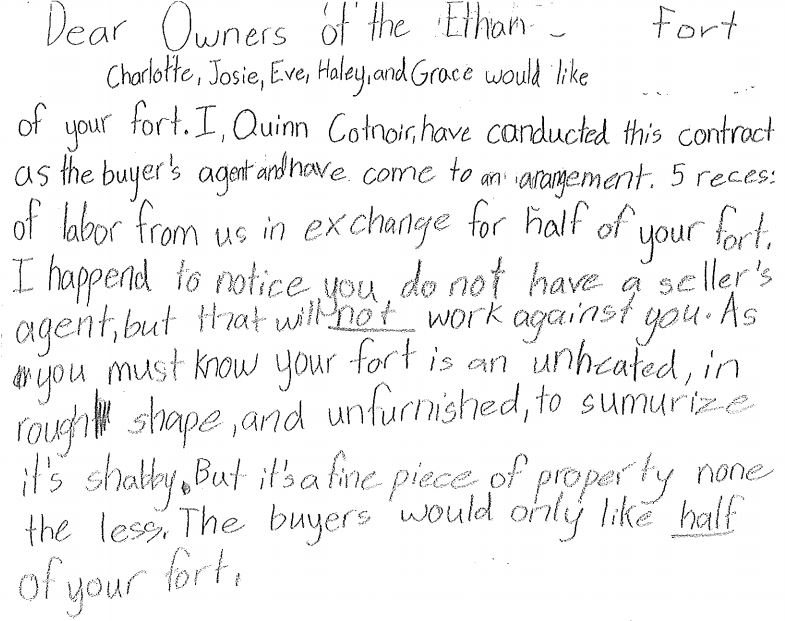 Dear Owners of the Ethan - Fort
Charlotte, Josie, Eve, Haley, and Grace would like
of your fort. I, Quinn Cotnoir, have conducted this contract
as the buyer's agent and have come to an arangement. 5 reces:
of labor from us in exchange for half of your fort.
I happend to notice you do not have a seller's
agent, but that will not work against you. As
you must know your fort is an unheated, in
rough shape, and unfurnished, to sumurize
it's shabby. But it's a fine piece of property none
the less. The buyers would only like half
of your fort.